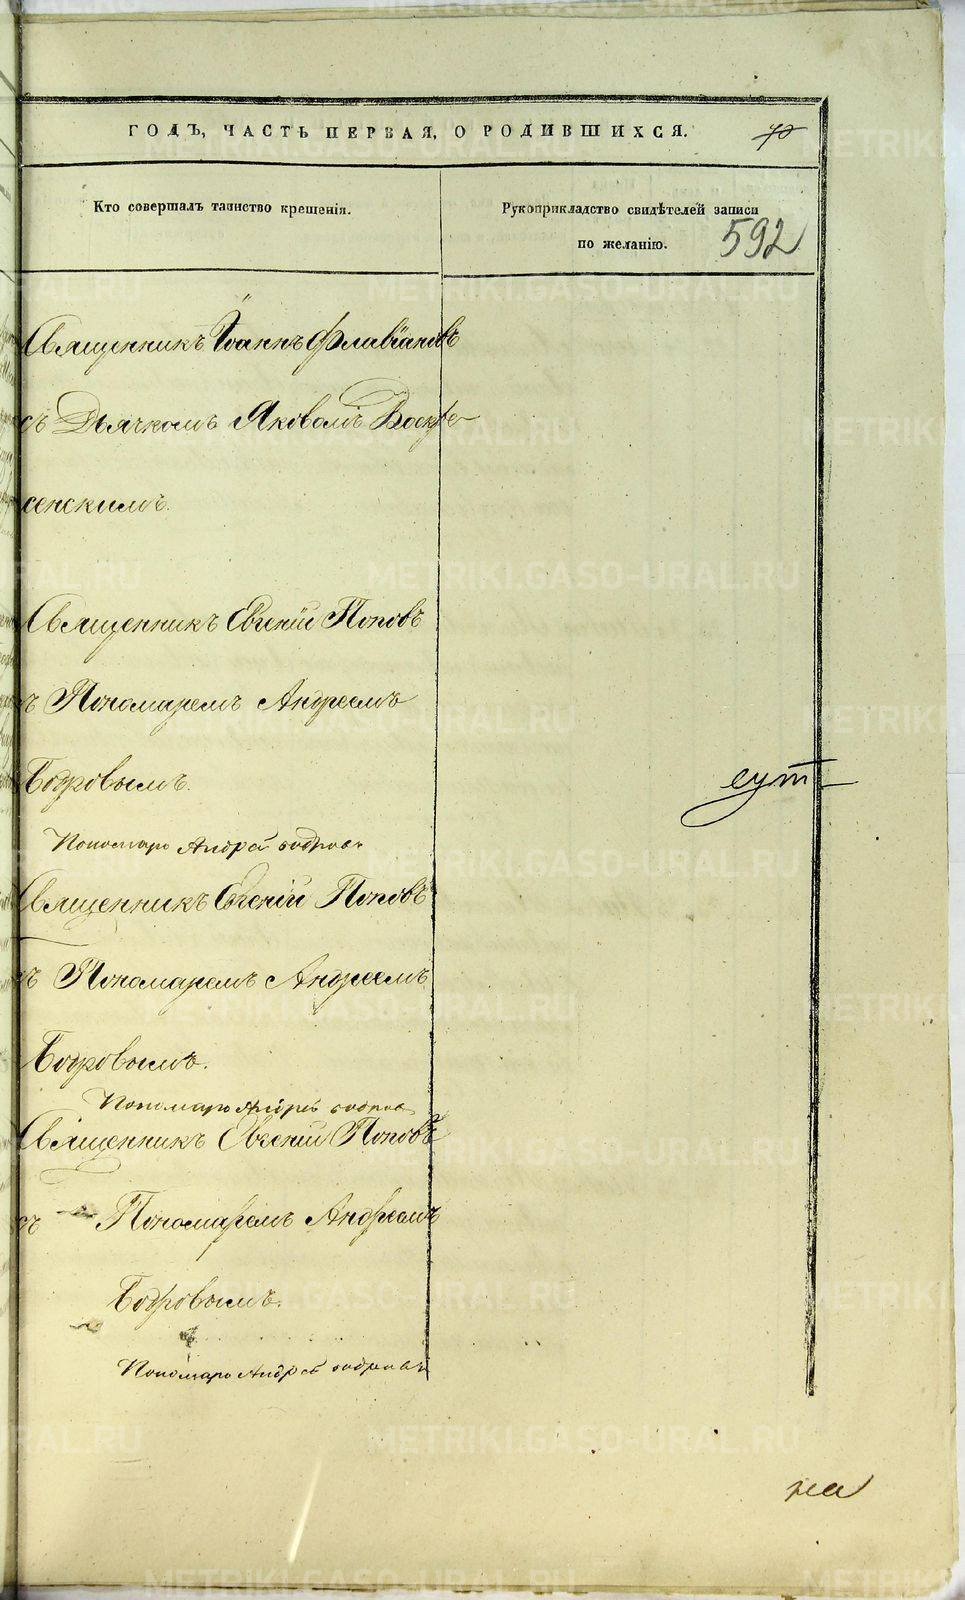 ГОДЪ, ЧАСТЬ ПЕРВАЯ, О РОДИВШИХСЯ.
Кто совершалъ таинство крещенія.
Рукоприкладство свидѣтелей записи
по желанію.
592
Священникъ Іоаннъ Флавіановъ
съ Дьячкомъ Яковомъ Воскре-
сенскимъ.
Священникъ Евгеній Поповъ
съ Пономаремъ Андреемъ
Бодровымъ.
Пономарь Андрей Бодровъ
Священникъ Евгеній Поповъ
съ Пономаремъ Андреемъ
Бодровымъ.
Пономарь Андрей Бодровъ
Священникъ Евгеній Поповъ
съ Пономаремъ Андреемъ
Бодровымъ.
Пономарь Андрей Бодровъ
METRIKI.GASO-URAL.RU